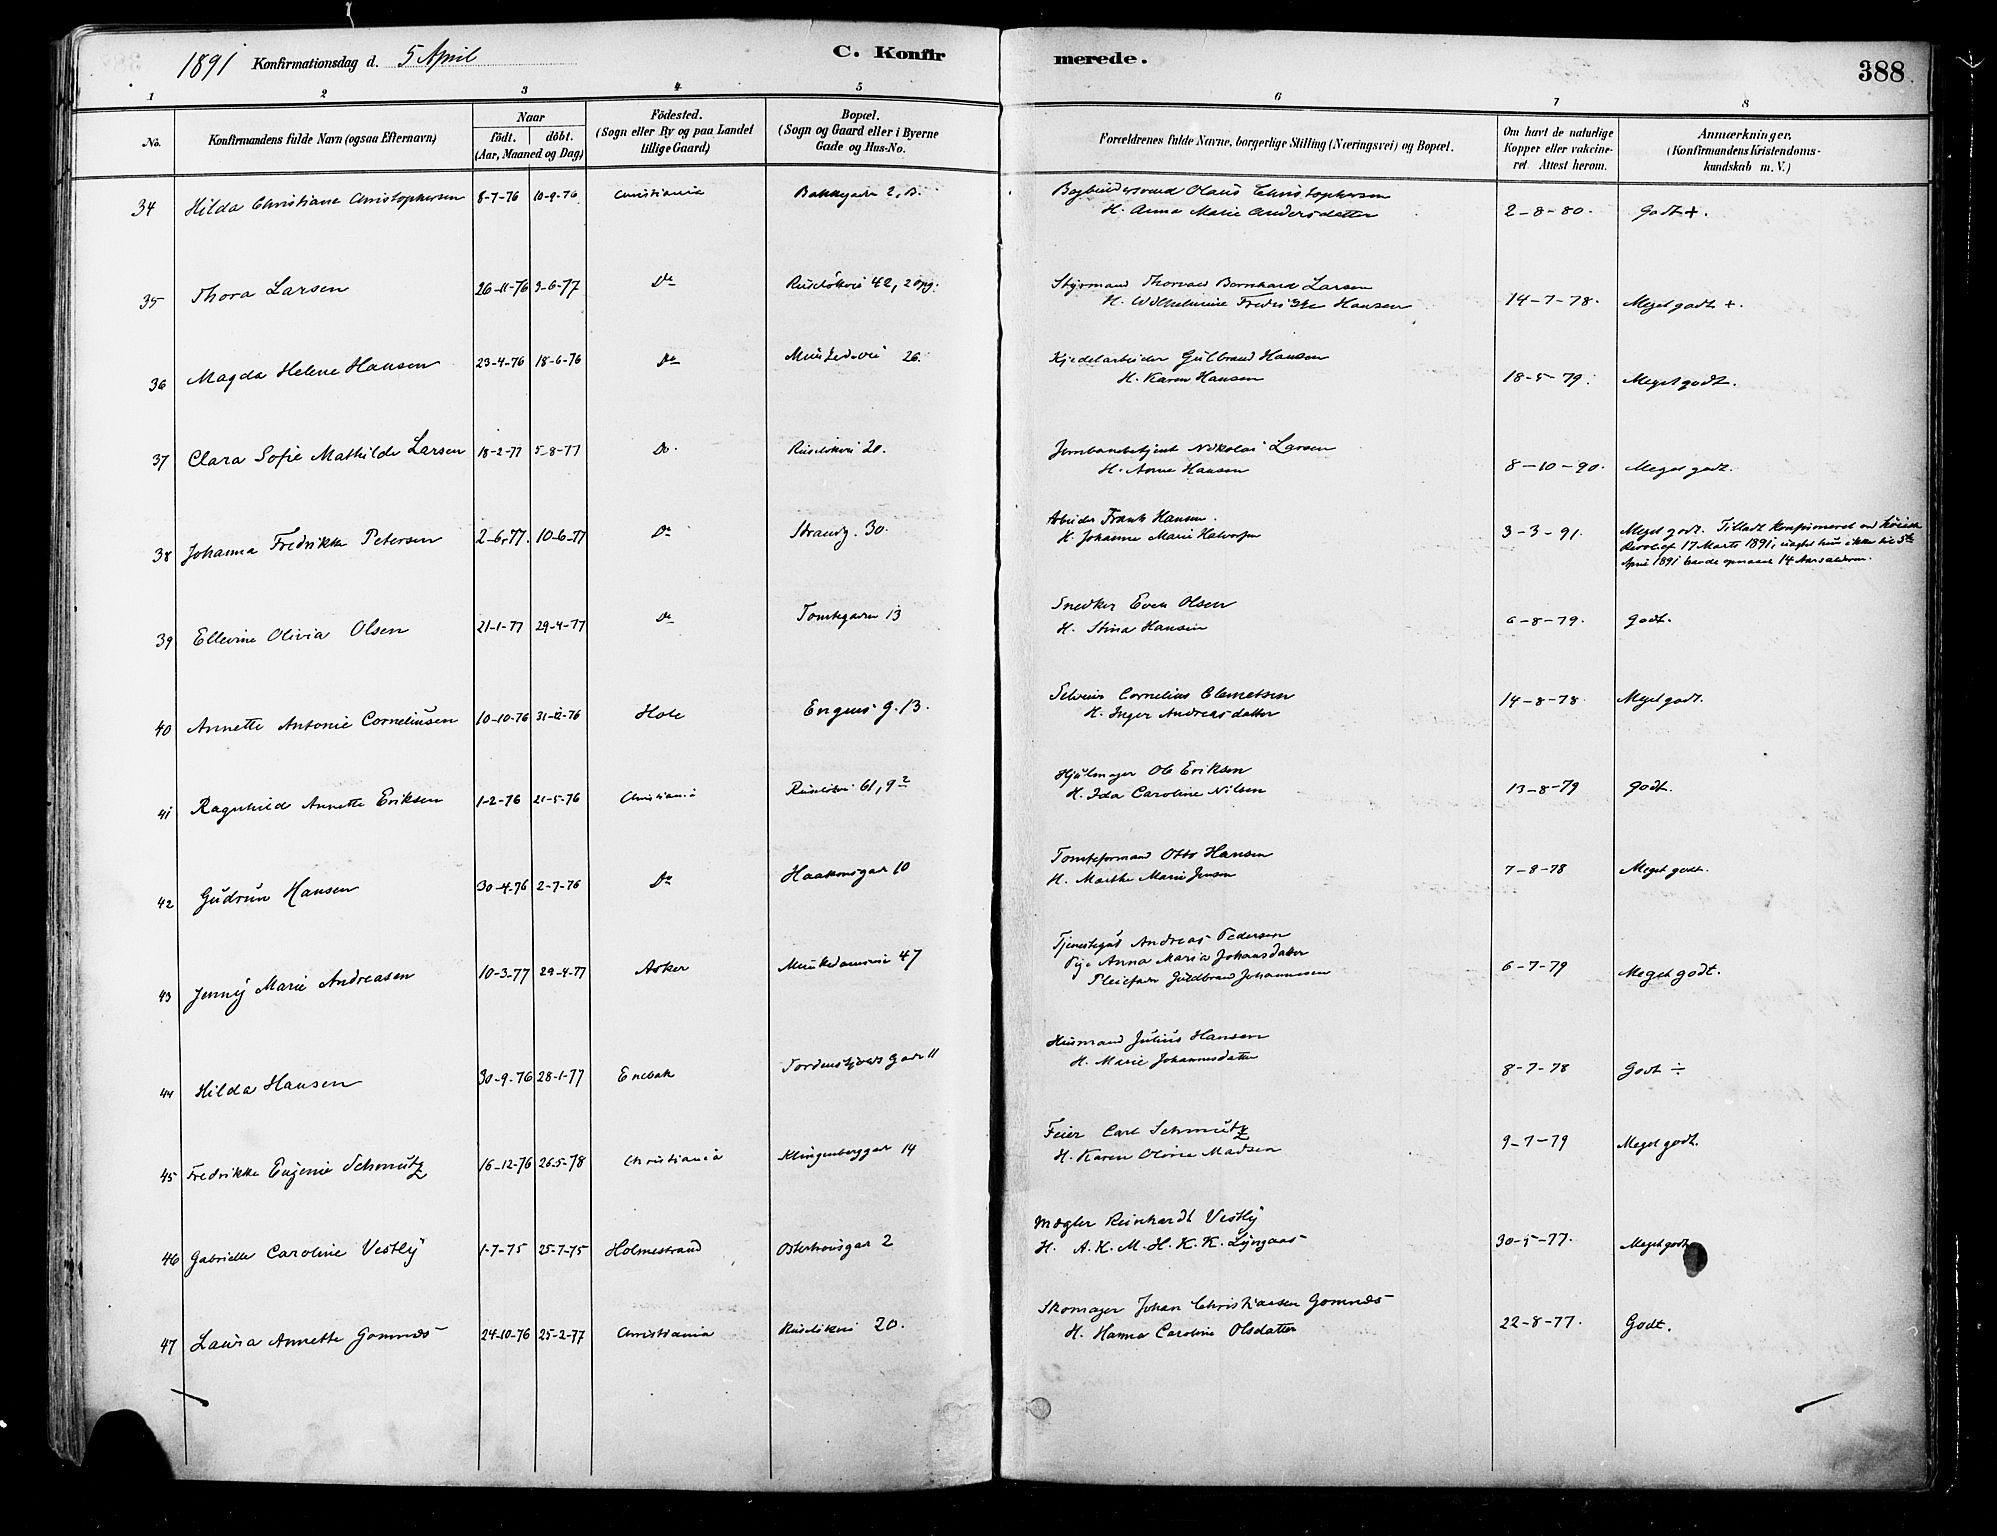 1891 Konfirmationsdag d. 5 April
C. Konfirmerede.
388
1 2 3 4 5 6 7 8
No.
Konfirmandens fulde Navn (ogsaa Efternavn)
Naar
födt. döbt.
(Aar, Maaned og Dag)
Födested.
(Sogn eller By og paa Landet
tillige Gaard)
Bopæl.
(Sogn og Gaard eller i Byerne
Gade og Hus-No.
Forældrenes fulde Navne, borgerlige Stilling (Næringsvei) og Bopæl.
Om havt de naturlige
Kopper eller vakcine-
ret. Attest herom.
Anmærkninger.
(Konfirmandens Kristendoms-
kundskab m. V.)
34 Hilda Christiane Christophersen 8-7-76 10-9-76 Christiania Bakkegaden 2, B. Bogbindersvend Olaus Christophersen
H. Anna Marie Andersdatter 2-8-80. Godt +.
35 Thora Larsen 26-11-76 3-6-77 Do Ruseløkvei 42, 2 opg. Styrmand Thorvald Bernhard Larsen
H. Wilhelmine Fredrikke Hansen 14-7-78. Meget godt +.
36 Magda Helene Hansen 23-4-76 18-6-76 Do Munkedvei 26. Kjedelarbeider Gulbrand Hansen
H. Karen Hansen 18-5-79. Meget godt.
37 Clara Sofie Mathilde Larsen 18-2-77 5-8-77 Do. Ruseløkvei 20. Jernbanebetjent Nikolai Larsen
H. Anna Hansen 8-10-90. Meget godt.
38 Johanna Fredrikke Petersen 2-6-77. 10-6-77 Do Strandg. 30. Arbeider Frants Hansen.
H. Johanne Marie Halvorsen 3-3-91. Meget godt. Tilladt konfirmeret ved
Resol. af 17 Marts 1891, uagtet hun ikke til 5te
April 1891 havde opnaaet 14 Aarsalderen.
39 Ellevine Olivia Olsen 21-1-77 29-4-77 Do Tomtegaden 13 Snedker Even Olsen
H. Stina Hansen 6-8-79. Godt.
40 Annette Antonie Corneliusen 10-10-76 31-12-76 Hole Engens g. 13. Selveier Cornelius Clemetsen
H. Inger Andreasdatter 14-8-78. Meget godt.
41 Ragnhild Annette Eriksen 1-2-76 21-5-76 Christiania Ruseløkvei 61, 9 2 Hjulmager Ole Eriksen
H. Ida Caroline Nilsen 13-8-79 Godt.
42 Gudrun Hansen 30-4-76 2-7-76 Do Haakonsgad 10 Tomteformand Otto Hansen
H. Marthe Marie Jensen 7-8-78 Meget godt.
43 Jenny Marie Andreasen 10-3-77 29-4-77 Asker Munkedamsvei 47 Tjenestegut Andreas Pedersen
Pige Anna Maria Johansdatter
Pleiefader Guldbrand Johannessen 6-7-79 Meget godt.
44 Hilda Hansen 30-9-76 28-1-77 Enebak Tordenskjolds gade 11 Husmand Julius Hansen
H. Marie Johannesdatter 8-7-78 Godt ÷
45 Fredrikke Eugenie Schmutz 16-12-76 26.5-78 Christiania Klingenberggad 14 Feier Carl Schmutz
H. Karen Olovie Madsen 9-7-79 Meget godt.
46 Gabrielle Caroline Vestly 1-7-75 25-7-75 Holmestrand Osterhousgad 2 Mægler Reinhardt Vestly
H. A. K. M. H. K. K. Lyngaas 30-5-77. Meget godt
47 Laura Annette Gomnæs 24-10-76 25-2-77 Christiania Ruseløkvei 20. Skomager Johan Christiansen Gomnæs
H. Hanna Caroline Olsdatter 22-8-77. Godt.